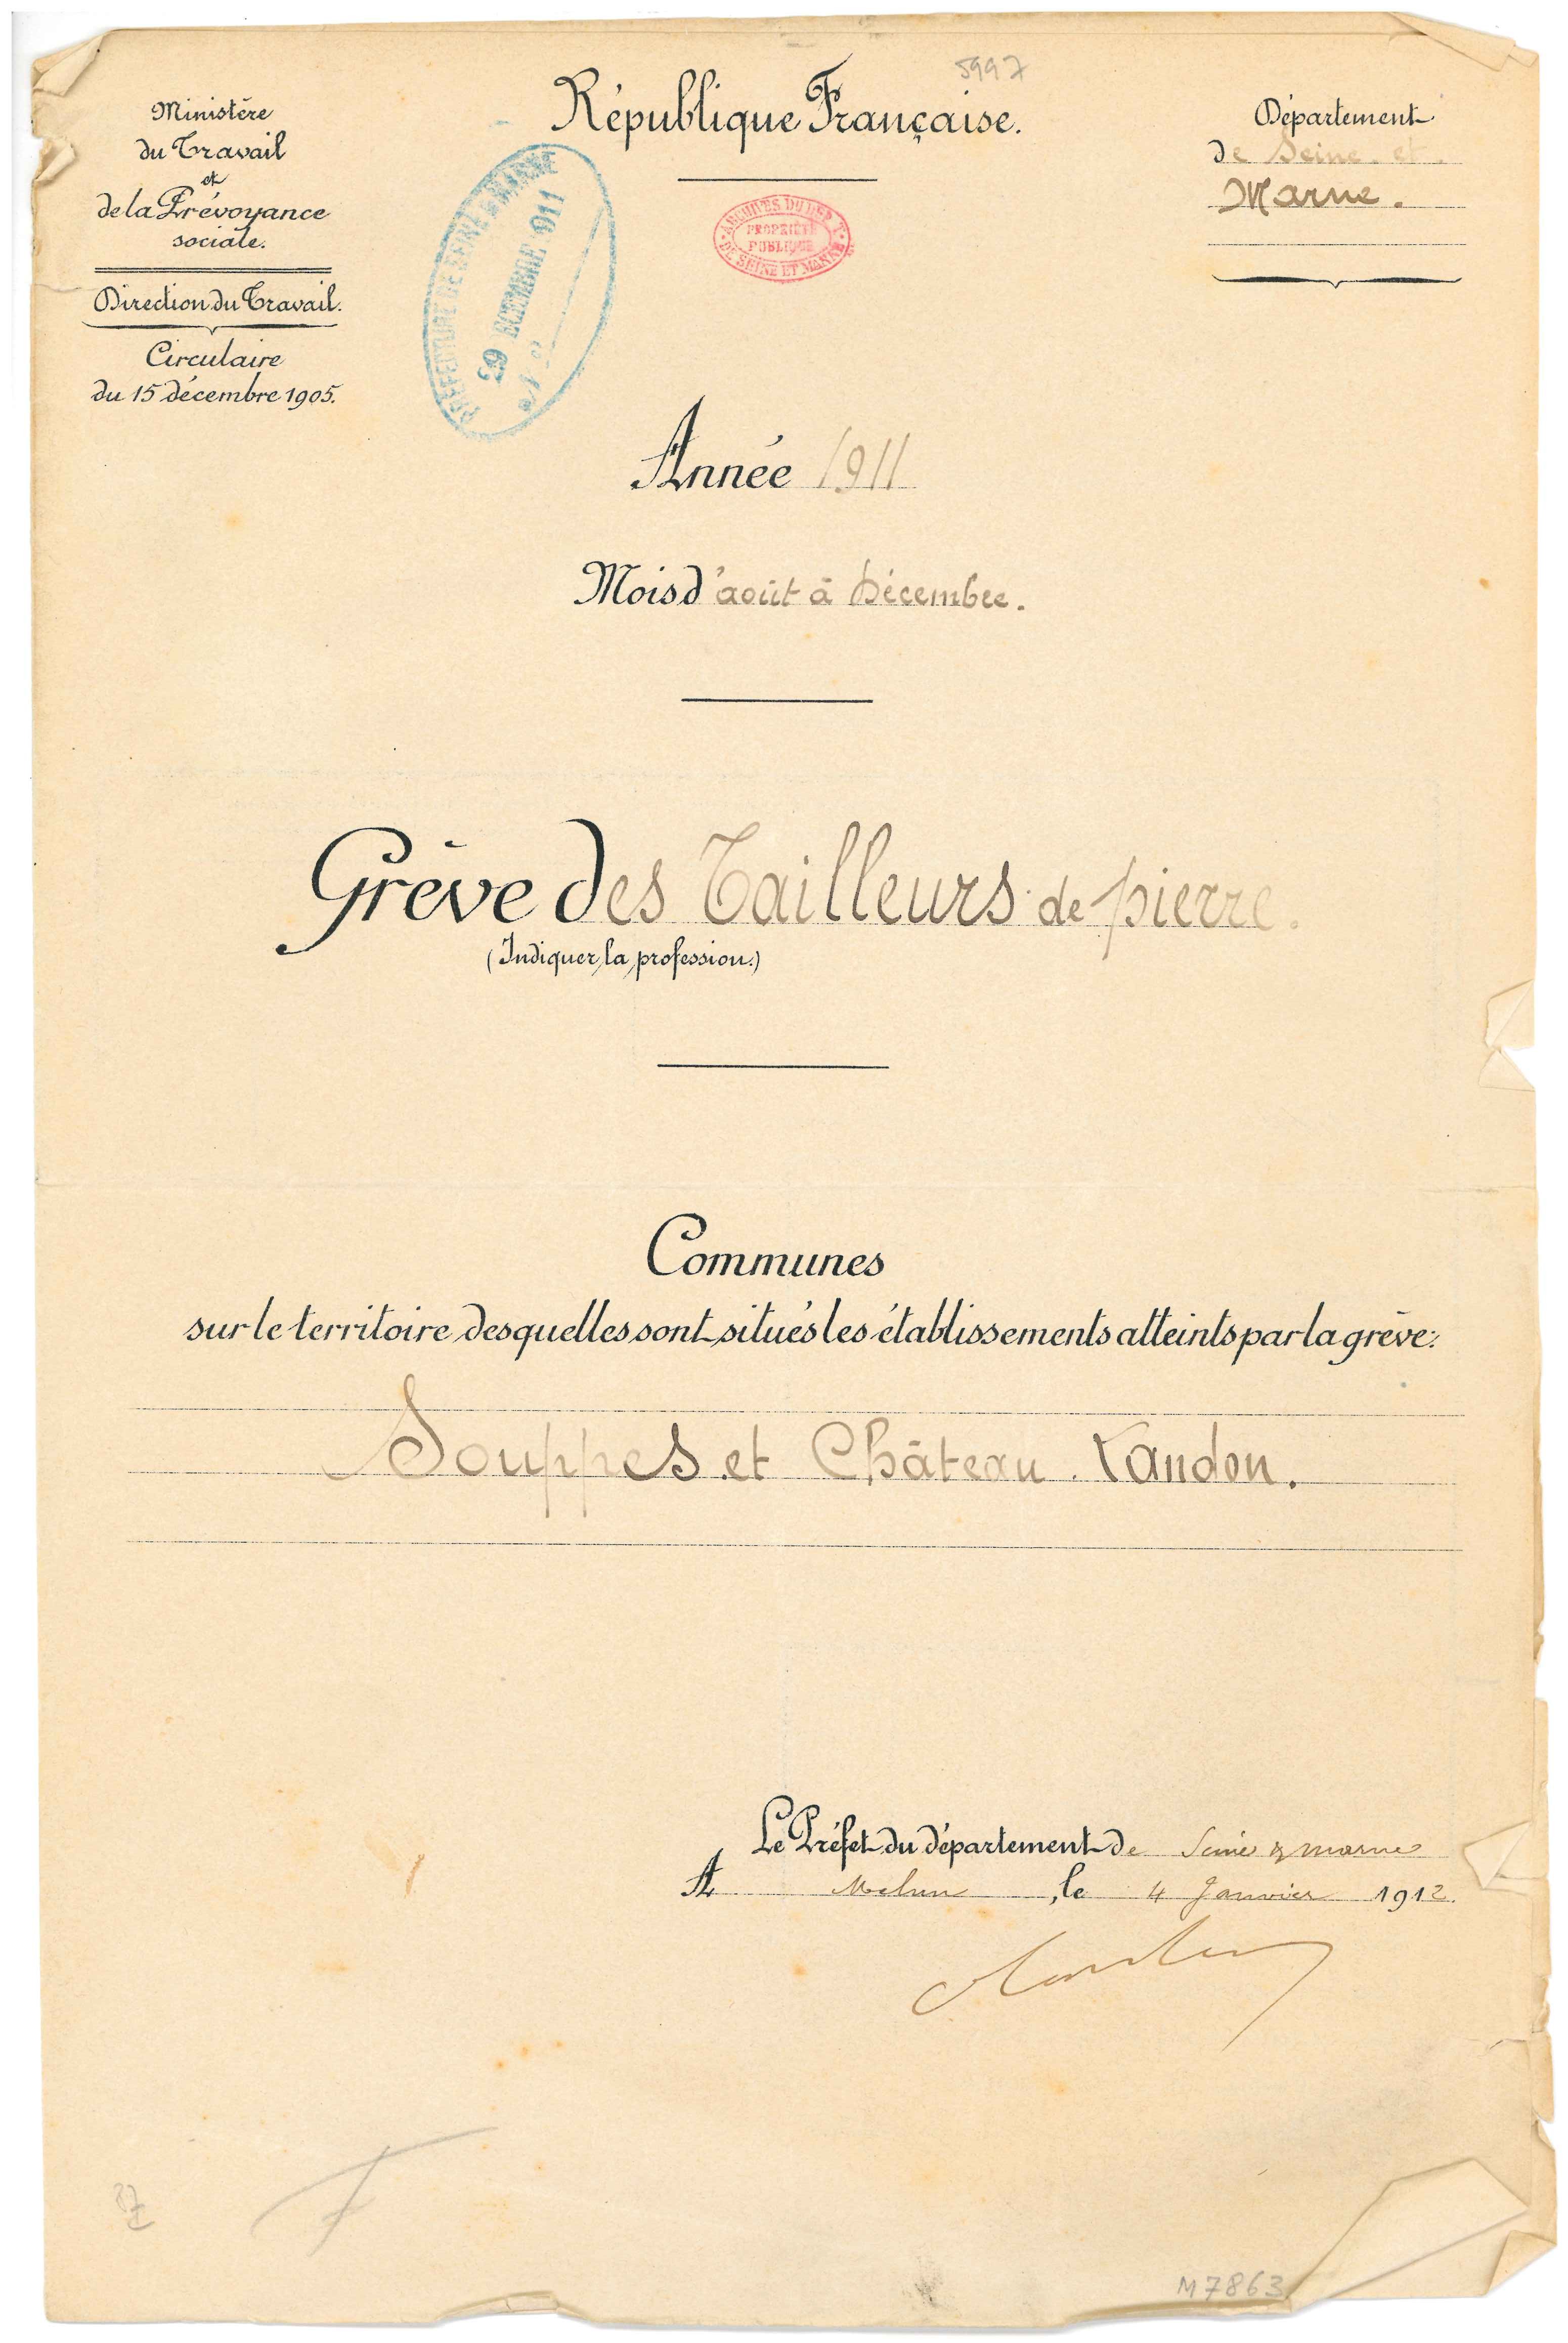 5997
République Française.
Ministère
du Travail
et
de la Prévoyance
sociale.
Direction du Travail.
Circulaire
du 15 décembre 1905.
Département
de Seine. et.
Marne.
PREFECTURE DE SEINE ET MARNE
29 DECEMBRE 911
ARCHIVES DU DEPT
PROPRIÉTÉ
PUBLIQUE
DE SEINE ET MARNE
Année 1911
Mois d'août à Décembre.
Grève des Tailleurs de pierre.
(Indiquer la profession.)
Communes
sur le territoire desquelles sont situés les établissements atteints par la grève:
Souppes et Château. Landon.
Le Préfet du département de Seine & marne
A Melun, le 4 Janvier 1912.
M7863